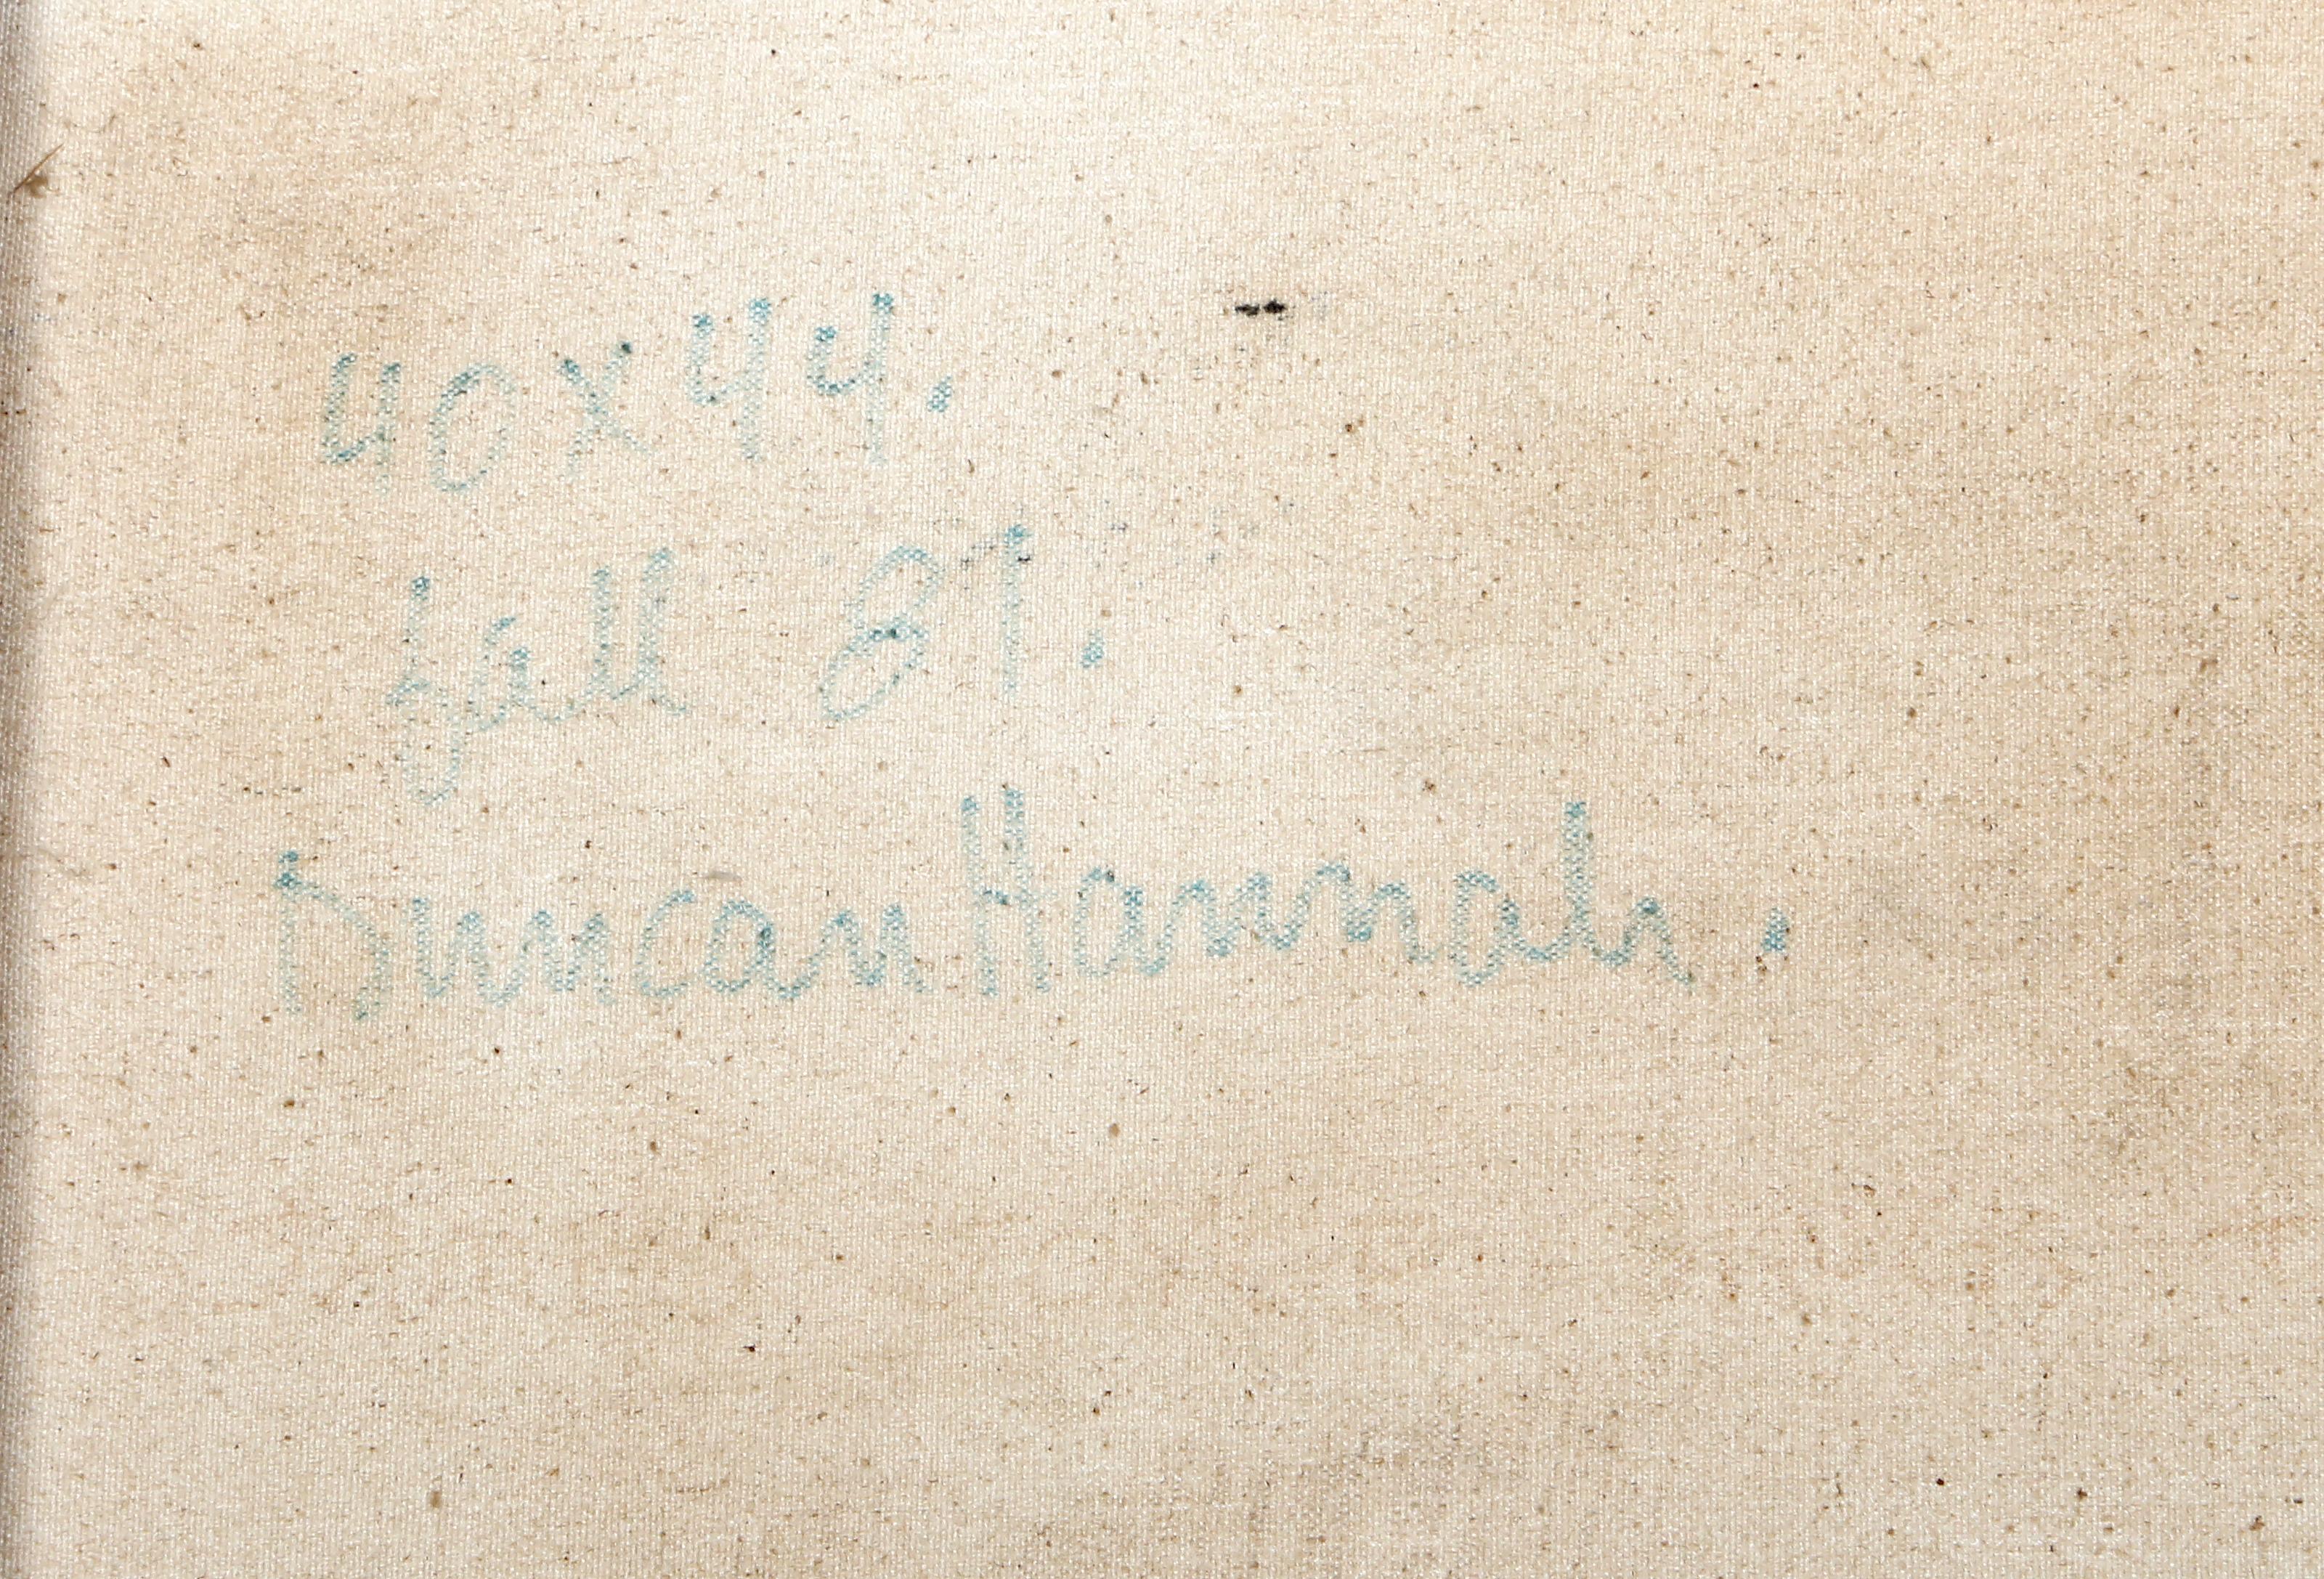 40x44.
fall 81.
Duncan Hannah.